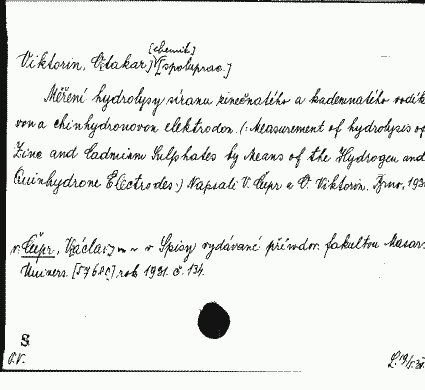 [chemik]
Viktorin, Otakar, [spoluprac.]
Měření hydrolysy síranu zinečnatého a kademnatého vodík
vou a chinhydronovou elektrodou. (: Measurement of hydrolysis of
Zinc and Cadmium Sulphates by Means of the Hydrogen and
Quinhydrone Electrodes.) Napsali V. Čupr a O. Viktorin. Brno, 193
v. Čupr, Václav, v Spisy vydávané přírodov. fakultou Masar
Univers. [57680] rok 1931. č. 134.
S
O.V.